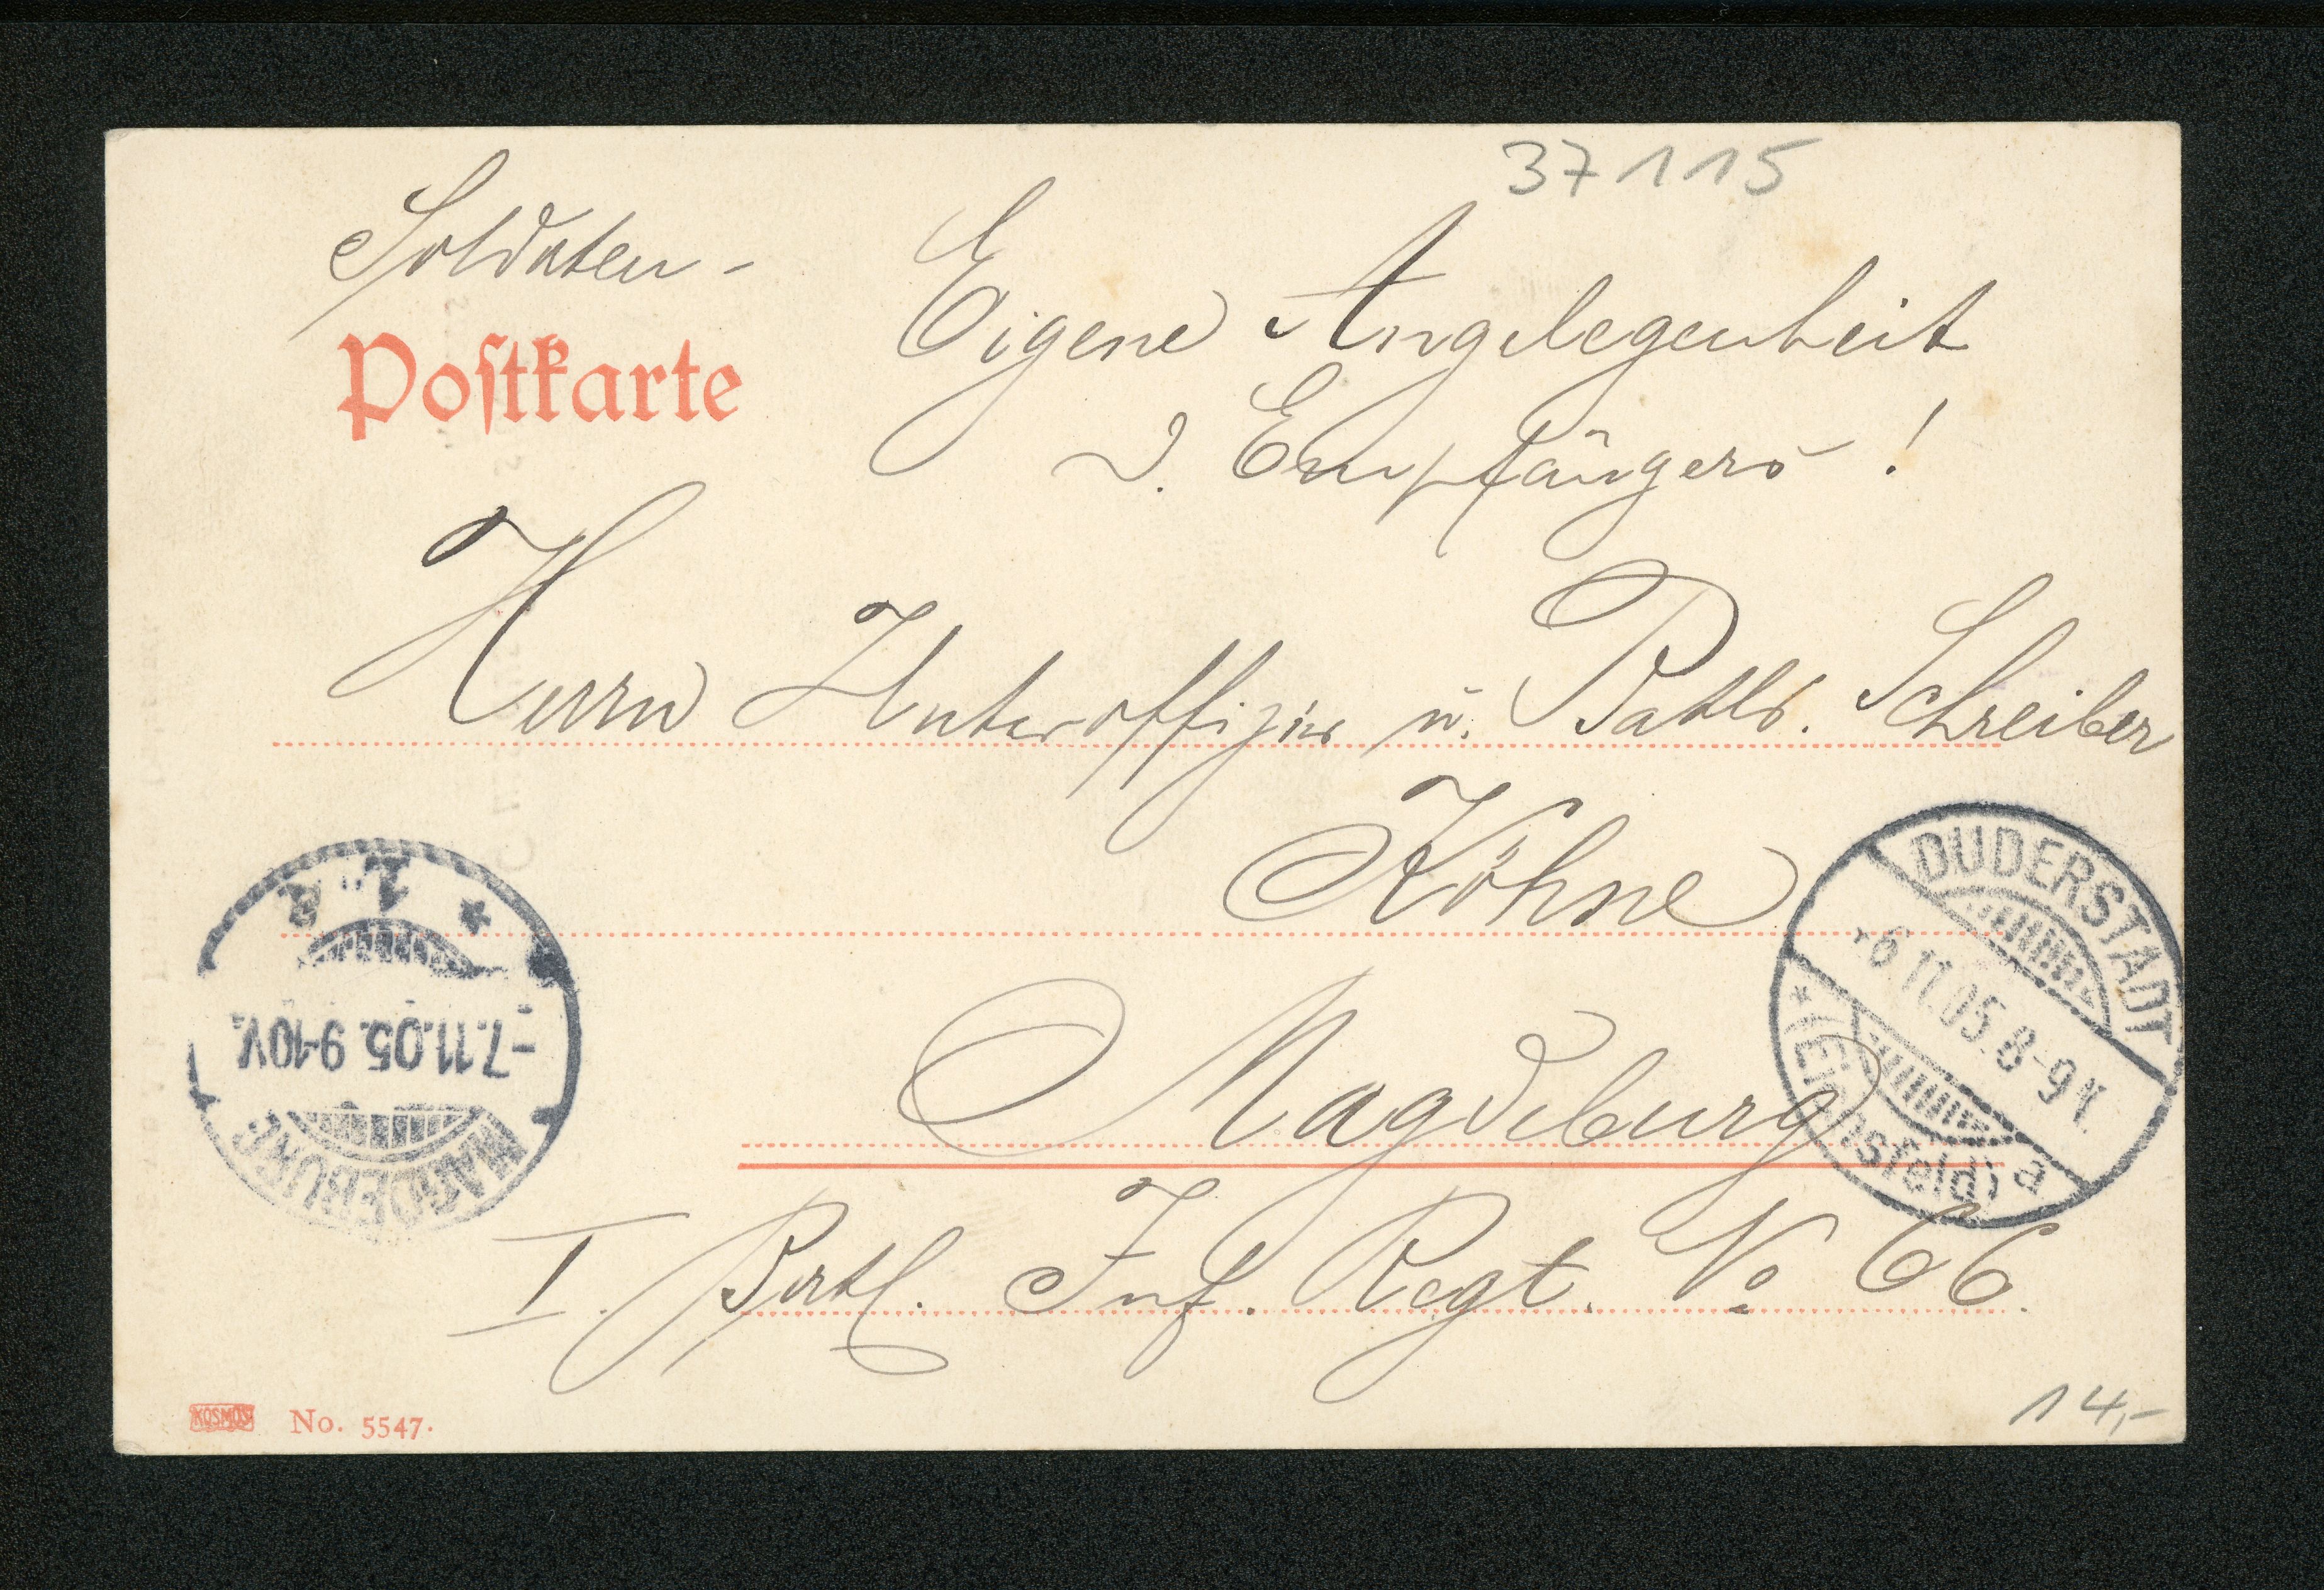 37115
Soldaten-
Postkarte
Eigene Angelegenheit
d. Empfängers!
Herrn Unteroffizier u. Batls. Schreiber
Köhne
Magdeburg
I. Batl. Inf. Regt. No 66.
DUDERSTADT
* 6.11.05.8-9V.
* (Eichsfeld) a
MAGDEBURG
-7.11.05.9-10V.
* 1
KOSMOS No. 5547.
14,-